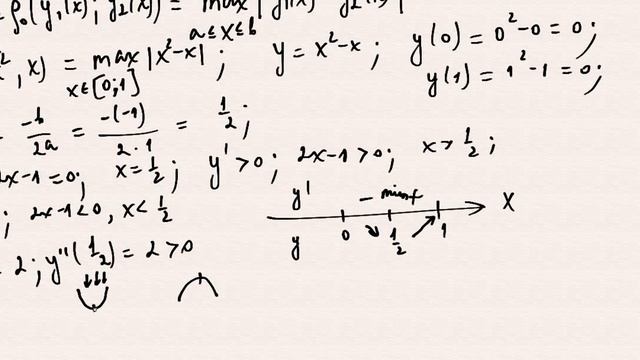 ρ₀(y₁(x); y₂(x)) = max |y₁(x) - y₂(x)|
a≤x≤b
², x) = max |x²-x| ; y = x²-x ; y(0) = 0²-0 = 0 ;
x∈[0;1] y(1) = 1²-1 = 0;
-b/2a = -(-1)/2·1 = 1/2 ;
2x-1=0; x=1/2; y'>0; 2x-1>0; x>1/2;
; 2x-1<0, x<1/2 y' - + x
y 0 1/2 1
2; y''(1/2) = 2 >0